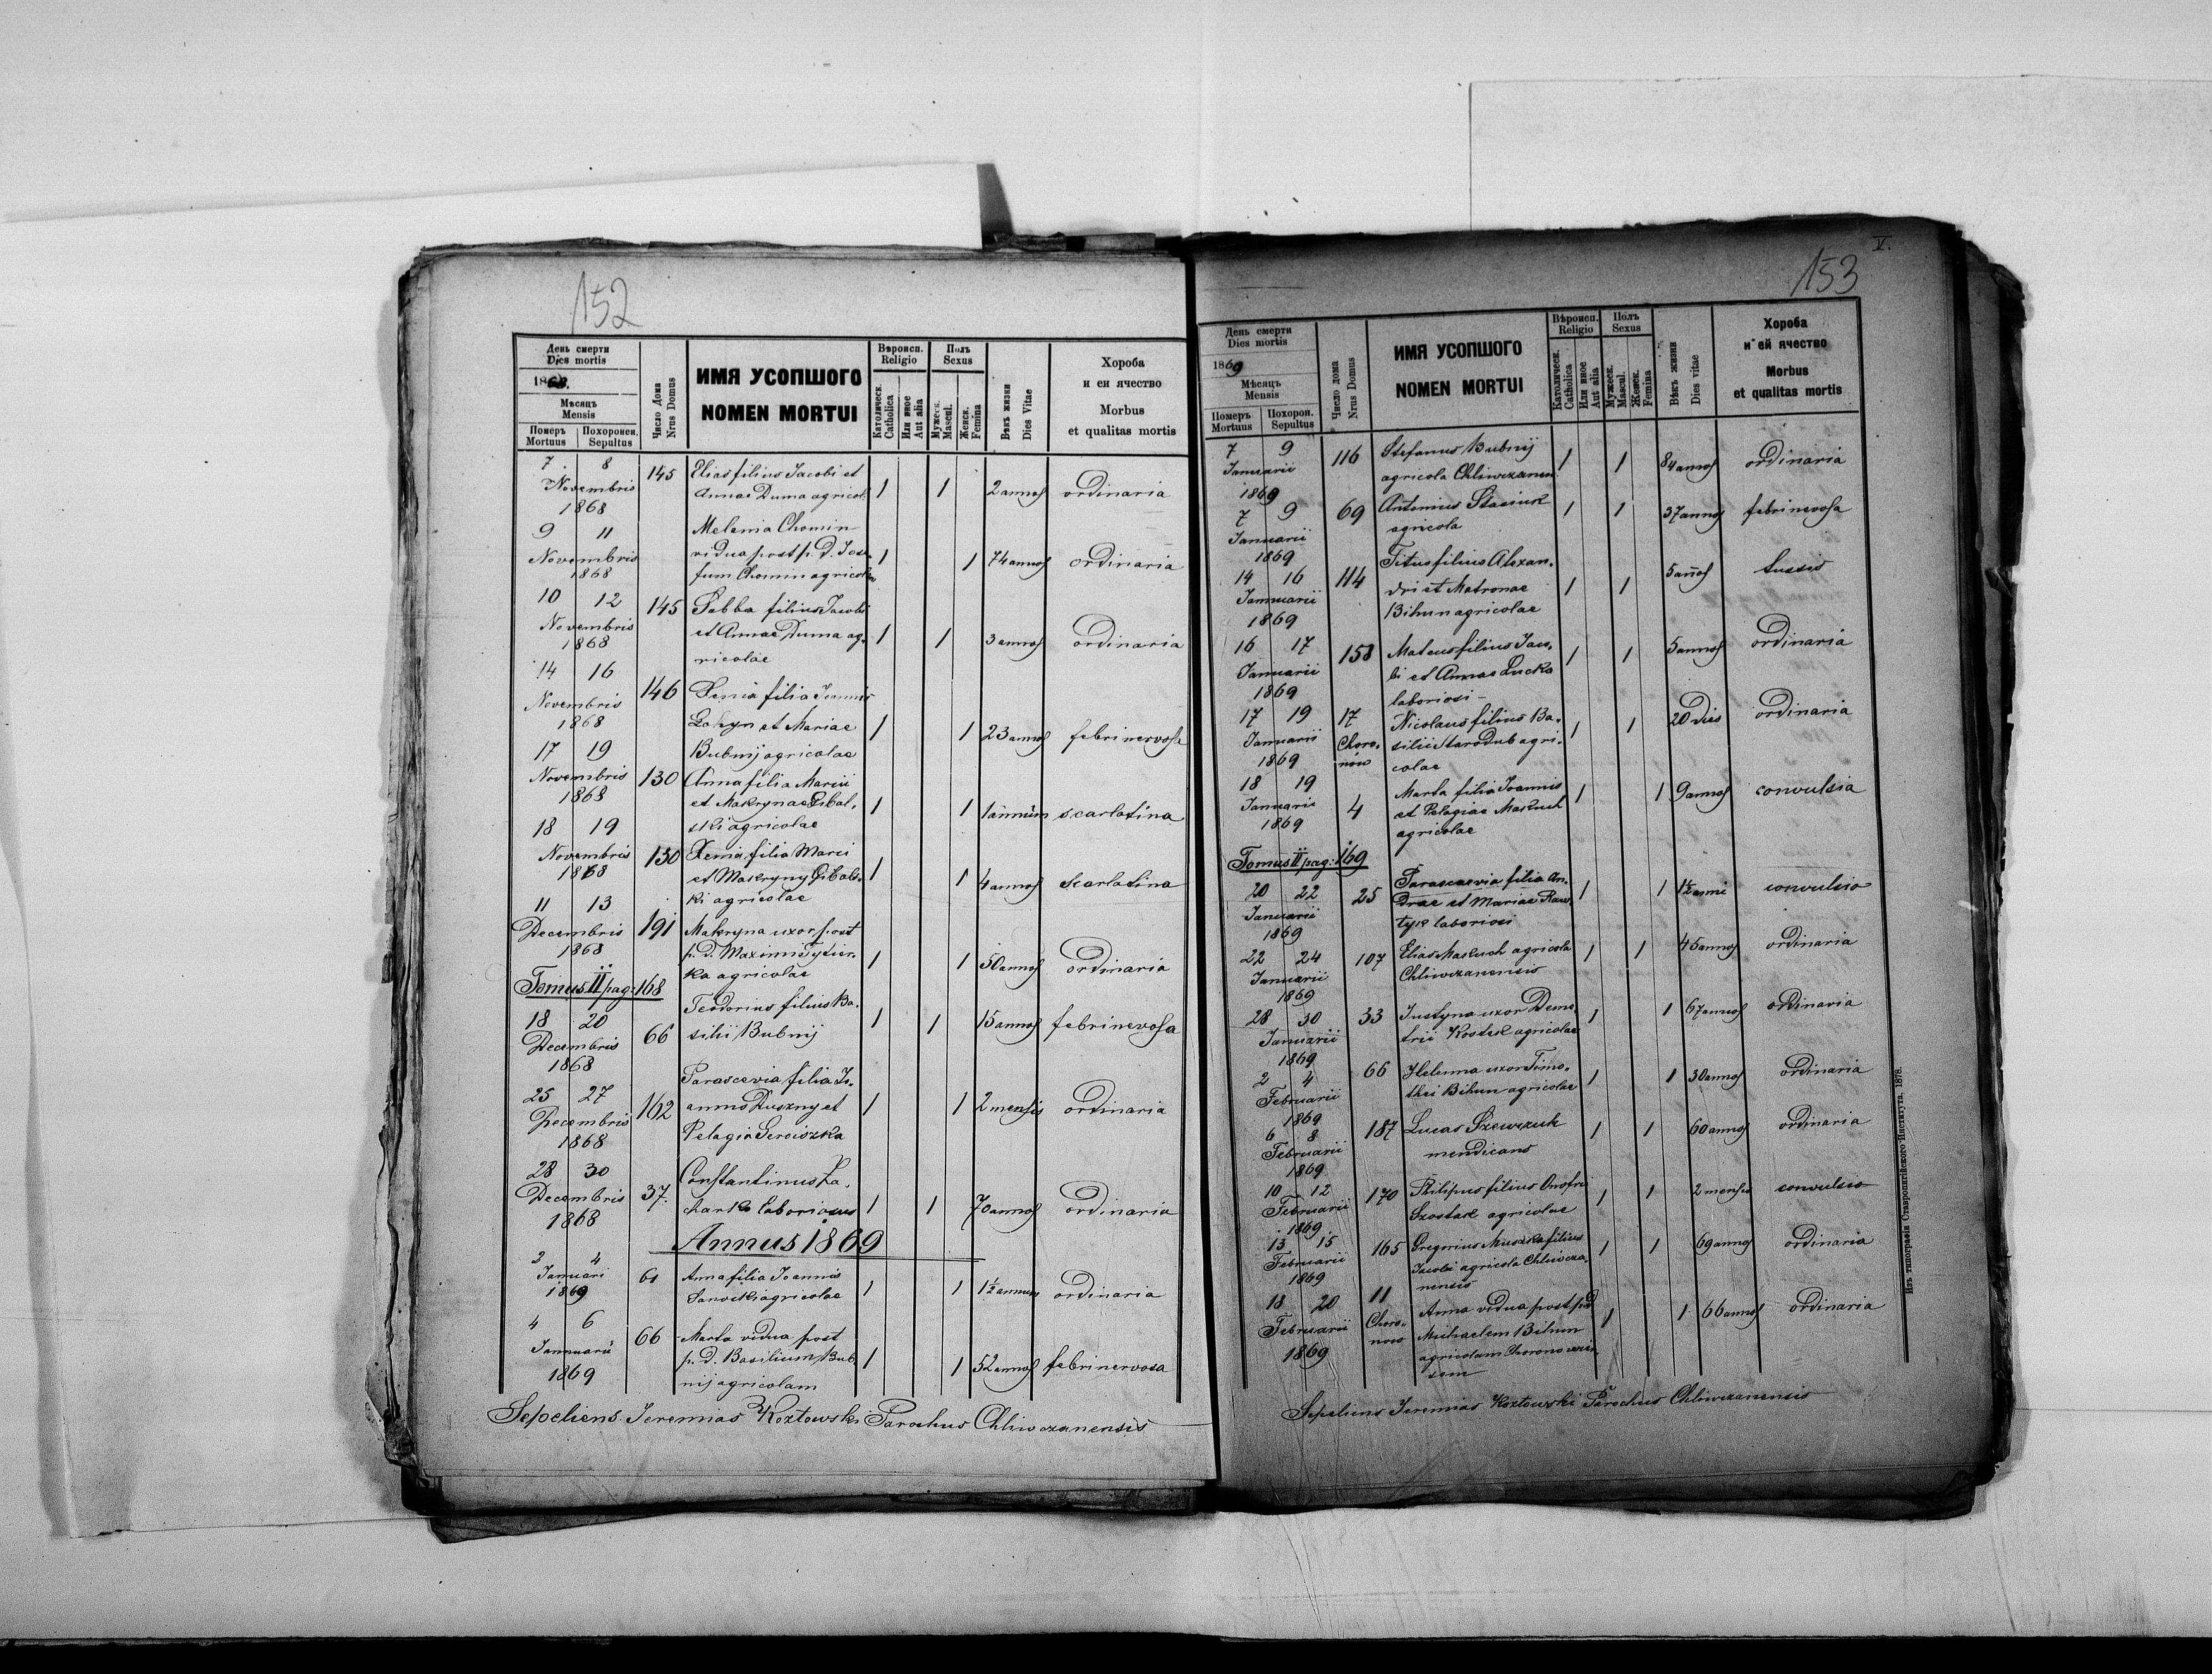 152
День смерти
Dies mortis
1868.
Мѣсяць
Mensis
Померъ
Mortuus
Похоронен.
Sepultus
Число Дома
Nrus Domus
ИМЯ УСОПШОГО
NOMEN MORTUI
Вѣроисп.
Religio
Католическ.
Catholica
Или иное
Aut alia
Полъ
Sexus
Мужеск.
Mascul.
Женск.
Femina
Вѣкъ жизни
Dies Vitae
Хороба
и еи ячество
Morbus
et qualitas mortis
7. 8 145 Elias filius Jacobi et
Novembris Annae Duma agricol. 1 1 2 annos ordinaria
1868
9 11 Melenia Chomin
Novembris vidua post p. d. Jose
1868 fum Chomin agricolam 1 1 74 annos ordinaria
10 12 145 Sabba filius Jacobi
Novembris et Annae Duma ag- 1 1 3 annos ordinaria
1868 ricolae
14 16 146 Xenia filia Joannis
Novembris et Mariae 1 1 23 annos febri nervosa
1868 Bubnij agricolae
17 19 130 Anna filia Marcii
Novembris et Makrynae Gibal- 1 1 1 annum scarlatina
1868 ski agricolae
18 19 130 Xenia filia Marci
Novembris et Makryny Gibals- 1 1 4 annos scarlatina
1868 ki agricolae
11 13 191 Makryna uxor post
Decembris p. d. Maximi 1 1 50 annos ordinaria
1868 ka agricolae
Tomus II pag: 168
18 20 66 Teodorius filius Ba-
Decembris silii Bubnij 1 1 15 annos febri nevosa
1868
25 27 162 Parascevia filia Jo-
Decembris annis Duszny et 1 1 2 mensis ordinaria
1868 Pelagia Gerciszka
28 30 37. Constantinus Za-
Decembris charko laboriosus 1 1 70 annos ordinaria
1868
Annus 1869
2 4 61 Anna filia Joannis
Januari Sanocki agricolae 1 1 1½ annum ordinaria
1869
4 6 66 Marta vidua post
Januarii p. d. Basilium Bub- 1 1 52 annos febri nervosa
1869 nij agricolam
Sepeliens Jeremias Kozłowski Parochus Chliwczanensis
V.
153
День смерти
Dies mortis
1869
Мѣсяць
Mensis
Померъ
Mortuus
Похорон.
Sepultus
Число дома
Nrus Domus
ИМЯ УСОПШОГО
NOMEN MORTUI
Вѣроисп.
Religio
Католическ.
Catholica
Или иное
Aut alia
Полъ
Sexus
Мужеск.
Mascul.
Женск.
Femina
Вѣкъ жизни
Dies vitae
Хороба
и ей ячество
Morbus
et qualitas mortis
7 9 116 Stefanus Bubnij
Januarii agricola Chliwczanen 1 1 84 annos ordinaria
1869
7 9 69 Antonius Stasiuk 1 1 37 annos febri nevosa
Januarii agricola
1869
14 16 114 Titus filius Alexan-
Januarii dri et Matronae 1 1 5 años tussis
1869 Bihun agricolae
16 17 158 Mateus filius Jaco-
Januarii bi et Annae Lucka 1 1 5 annos ordinaria
1869 laboriosi -
17 19 17 Nicolaus filius Ba-
Januarii Choro- silii Starodub agri- 1 1 20 dies ordinaria
1869 now colae
18 19 4 Marta filia Joannis
Januarii et Pelagiae Maskuch 1 1 9 annos convulsia
1869 agricolae
Tomus II pag: 169
20 22 25 Parascevia filia An-
Januarii drae et Mariae 1 1 1½ anni convulsio
1869 tyk laboriosi
22 24 107 Elias Maskuch agricola 1 1 45 annos ordinaria
Januarii Chliwczanensis
1869
28 30 33 Justyna uxor Deme
Januarii trii Kostek agricolae 1 1 67 annos ordinaria
1869
2 4 66 Helenna uxor Timo-
Februarii thei Bihun agricolae 1 1 30 annos ordinaria
1869
6 8 187 Lucas Szewczuk 1 1 60 annos ordinaria
Februarii mendicans
1869
10 12 170 Philipus filius Onofri
Februarii Szostak agricolae 1 1 2 mensis convulsio
1869
13 15 165 Gregorius Muszka filius
Februarii Jacobi agricola Chliwcza- 1 1 69 annos ordinaria
1869 nensis
18 20 11 Anna vidua post p d
Februarii Choro- Michaelem Bihun 1 1 66 annos ordinaria
1869 now agricolam Choronowien-
sem
Sepeliens Jeremias Kozłowski Parochus Chliwczanensis
Изъ типографіи Ставропигійского Института, 1878.